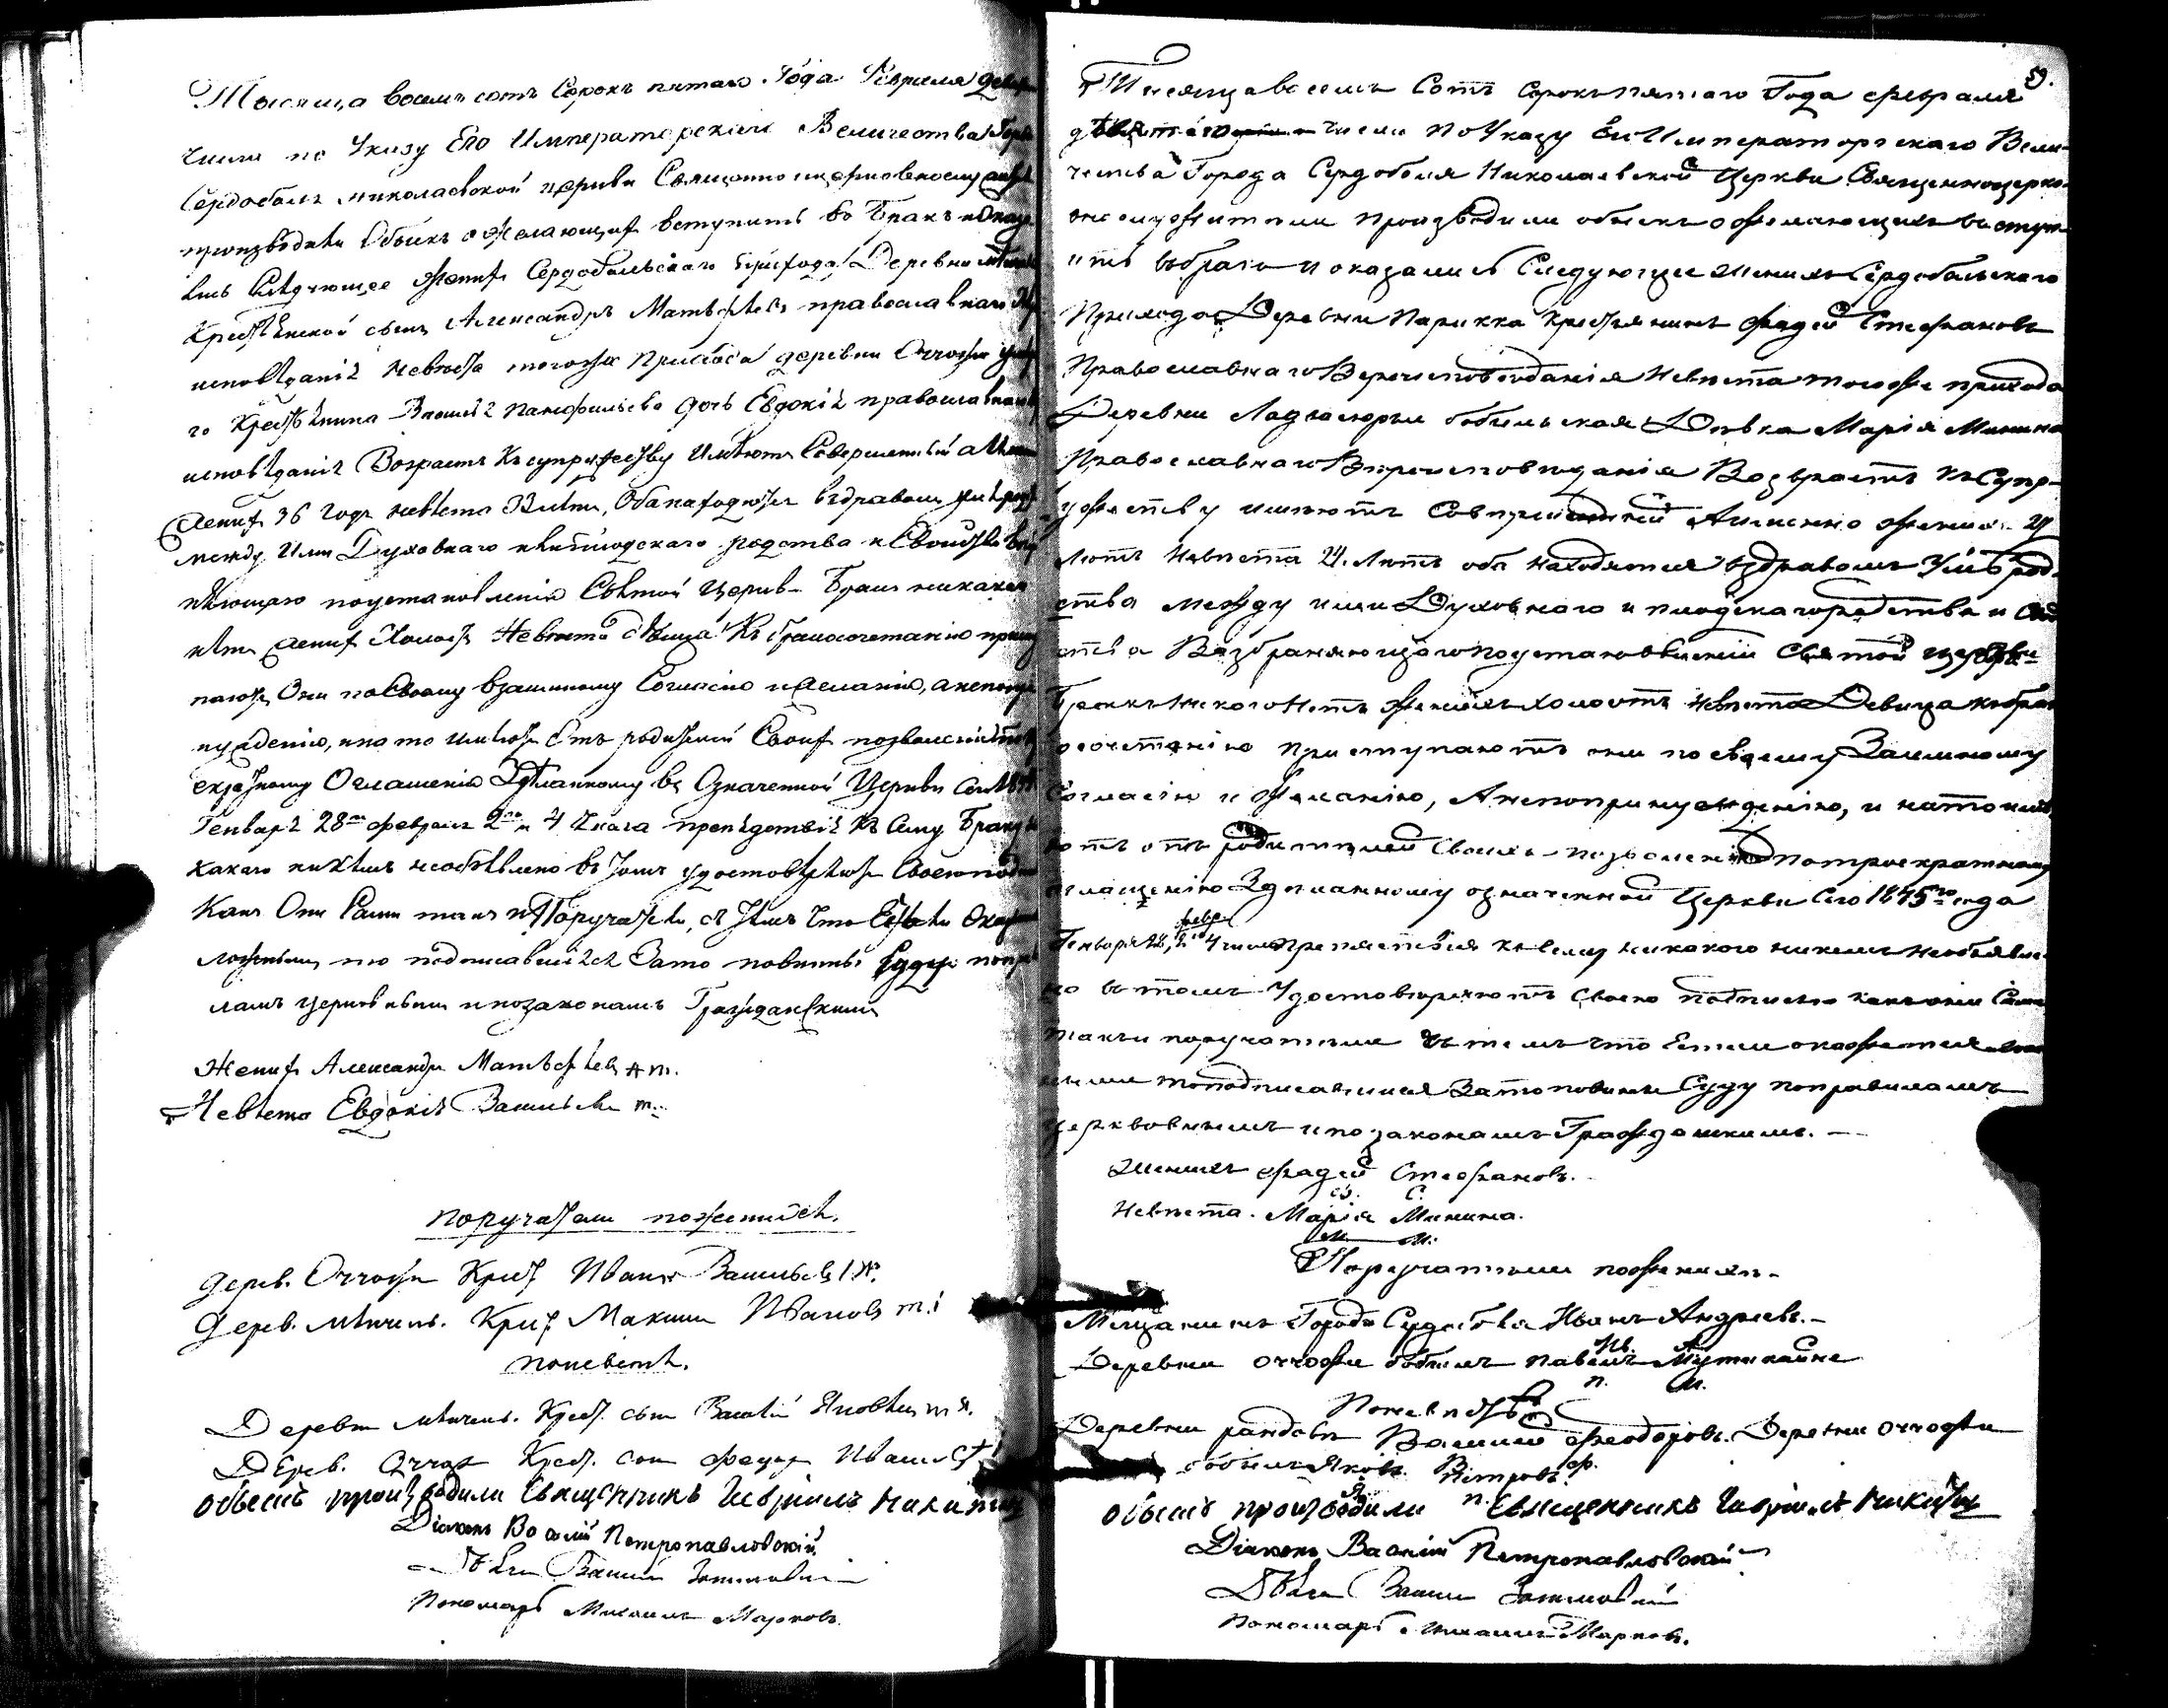 Тысяща восемь сотъ Сорокъ пятаго Года Февраля
числа по Указу Его Императорскаго Величества
Сердоболя Николаевской церкви Священноцерковнослужители
произвъдили Обыскъ о желающихъ вступить во Бракъ и Оказа
лись Слѣдующее Женихъ Сердобольскаго Прихода Деревни
Крестьянской сынъ Александръ Матвѣевъ православнаго
исповѣданія Невѣста тогоже Прихода деревни Оччойи
го Крестьянина Василія Панфильева дочь Евдокія православнаго
исповѣданія Возрастъ Къ супружеству Имѣютъ Совершенный а
Женихъ 36 Годъ невѣста лѣтъ, Оба находются въ здравомъ умѣ
между Ими Духовнаго и плотскаго родства и Свойства
няющаго поустановленію Святой Церкви Бракъ никакого
нѣтъ Женихъ Холостъ Невѣста дѣвица Къ бракосочетанію присту
паютъ Они по Своему взаимному Согласію и Желанію, а не по
нужденію, и на то имѣютъ Отъ родителей Своихъ позволеніе
екратному Оглашенію Здѣланному въ Означенной Церкви
Генваря 28го февраля 2го и 4 Числа препядствія Къ Сему Браку
какого никѣмъ необъявлено въ Томъ удостовѣряютъ Своею
Какъ Они Сами такъ и Поручатели, съ Тѣмъ Что Естьли Окаж
ложнымъ то подписавшіися Зато повинны Суду поправи
ламъ церковнымъ и позаконамъ Гражданскимъ
Женихъ Александръ Матвѣевъ А м.
Невѣста Евдокія Васильева
поручатели поженихѣ.
дерев. Оччойи Крест Иванъ Васильевъ
дерев. Крест. Максимъ Ивановъ
поневѣстѣ.
Деревни Крест. сынъ Василій Яковлевъ
Дерев. Оччой Крест. сынъ Федоръ Ивановъ
обыскъ произвѣдили Священникъ Гавріилъ Никитинъ
Діаконъ Василій Петропавловскій
Дьячекъ Василій
Пономарь Михаилъ Марковъ.
59.
Тысяща восемь Сотъ Сорокъ пятаго Года февраля
девятаго числа По Указу Его Императорскаго Вели-
чества Города Сердоболя Николаевской Церкви Священноцерко-
внослужители произвѣдили обыскъ о желающихъ вступ-
ить въ бракъ и оказались Следующее женихъ Сердобольскаго
Прихода Деревни Парикка Крестьянинъ Фадей Стефановъ
Православнаго Вероисповѣданія Невѣста тогоже прихода
Деревни бобыльская Девка Марія Минина
Православнаго Вѣроисповѣданія Возврастъ къ Супр-
ужеству имѣютъ Совершенный Аименно женихъ
Лѣтъ Невѣста 21. Лѣтъ оба находятся въ здравомъ Умѣ род-
ства между ими Духовнаго и плодскагородства и
ства Возбраняющаго поустановленію Святой церкви
Бракъ Никого Нетъ женихъ холостъ Невѣста Девица къ брак
осочетанію приступаютъ они по своему Заимному
Согласію и желанію, А непопринужденію, и на то имѣ
ютъ отъ родителей Своихъ позволеніе по троекратному
оглащенію Зделанному означенной Церкви Сего 1845го года
Генваря 28, февр. 2, и 4 числа препятствія къ Сему никакого никемъ необъявле-
но въ томъ Удостовѣряютъ Своею подписью какъ они Сами
такъ и поручатели съ темъ что Естьли окажется лож
нымъ то подписавшіися Зато повинны Суду поправиламъ
церковнымъ и по законамъ Гражданскимъ. —
Женихъ Фадей Стефановъ.
Невѣста. Марія Минина.
М. М.
Поручатели поженихѣ.
Мещанинъ Города Сердоболя Иванъ Андреевъ.-
Деревни оччойи бобыль Павелъ
П. М.
Поневѣстѣ
Деревни Василій Феодоровъ. Деревни Оччойи
бобыль Яковъ Петровъ.
обыскъ произвѣдили Священникъ Гавріилъ Никитинъ
Діаконъ Василій Петропавловскій
Дьячекъ Василій
Пономарь Михаилъ Марковъ.